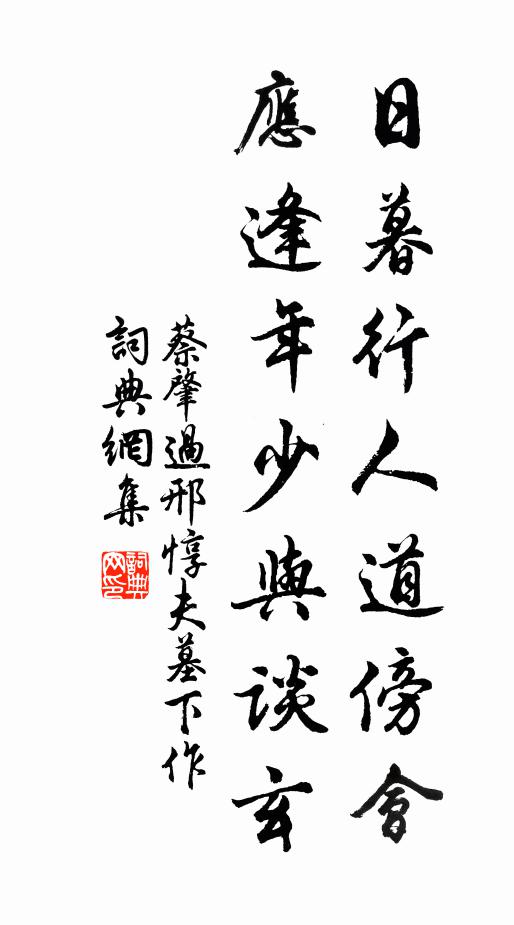 日暮行人道傍會
應逢年少與談玄
蔡肇過邢惇夫墓下作
詞典網集
詞典網印